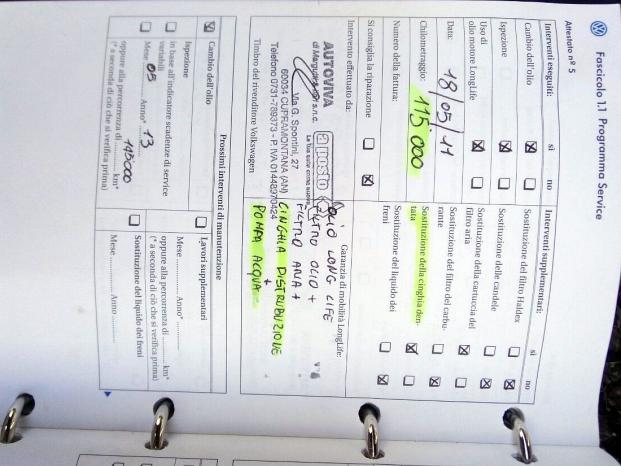 Fascicolo 1.1 Programma Service
Attestato n° 5
Interventi eseguiti: sì no
Cambio dell'olio
Ispezione
Uso di
olio motore LongLife
Data: 18/05/11
Chilometraggio: 115.000
Numero della fattura:
Si consiglia la riparazione
Intervento effettuato da:
AUTOVIVA
s.n.c.
a posto
Via G. Spontini, 27
60034 CUPRAMONTANA (AN)
Telefono 0731-789373 - P. IVA 01448970424
Timbro del rivenditore Volkswagen
Interventi supplementari: sì no
Sostituzione del filtro Haldex
Sostituzione delle candele
Sostituzione della cartuccia del
filtro aria
Sostituzione del filtro del carbu-
rante
Sostituzione della cinghia den-
tata
Sostituzione del liquido dei
freni
Garanzia di mobilità LongLife:
OLIO LONG LIFE
FILTRO OLIO +
FILTRO ARIA +
CINGHIA DISTRIBUZIONE
+
POMPA ACQUA
Prossimi interventi di manutenzione
Cambio dell'olio
Ispezione
in base all'indicatore scadenze di service
variabili
Mese 05 Anno* 13
oppure alla percorrenza di 145000 km*
(* a seconda di ciò che si verifica prima)
Lavori supplementari
Mese Anno*
oppure alla percorrenza di km*
(* a seconda di ciò che si verifica prima)
Sostituzione del liquido dei freni
Mese Anno